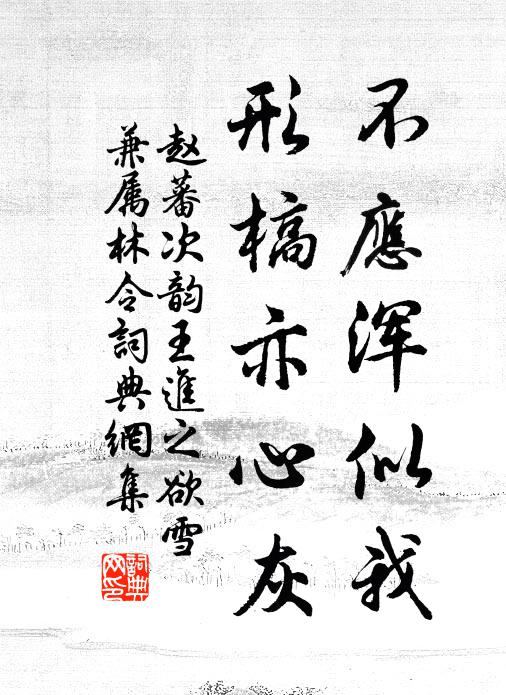 不應浑似我
形槁亦心灰
赵蕃次韵王進之欲雪
兼属林令詞典網集
詞典网印